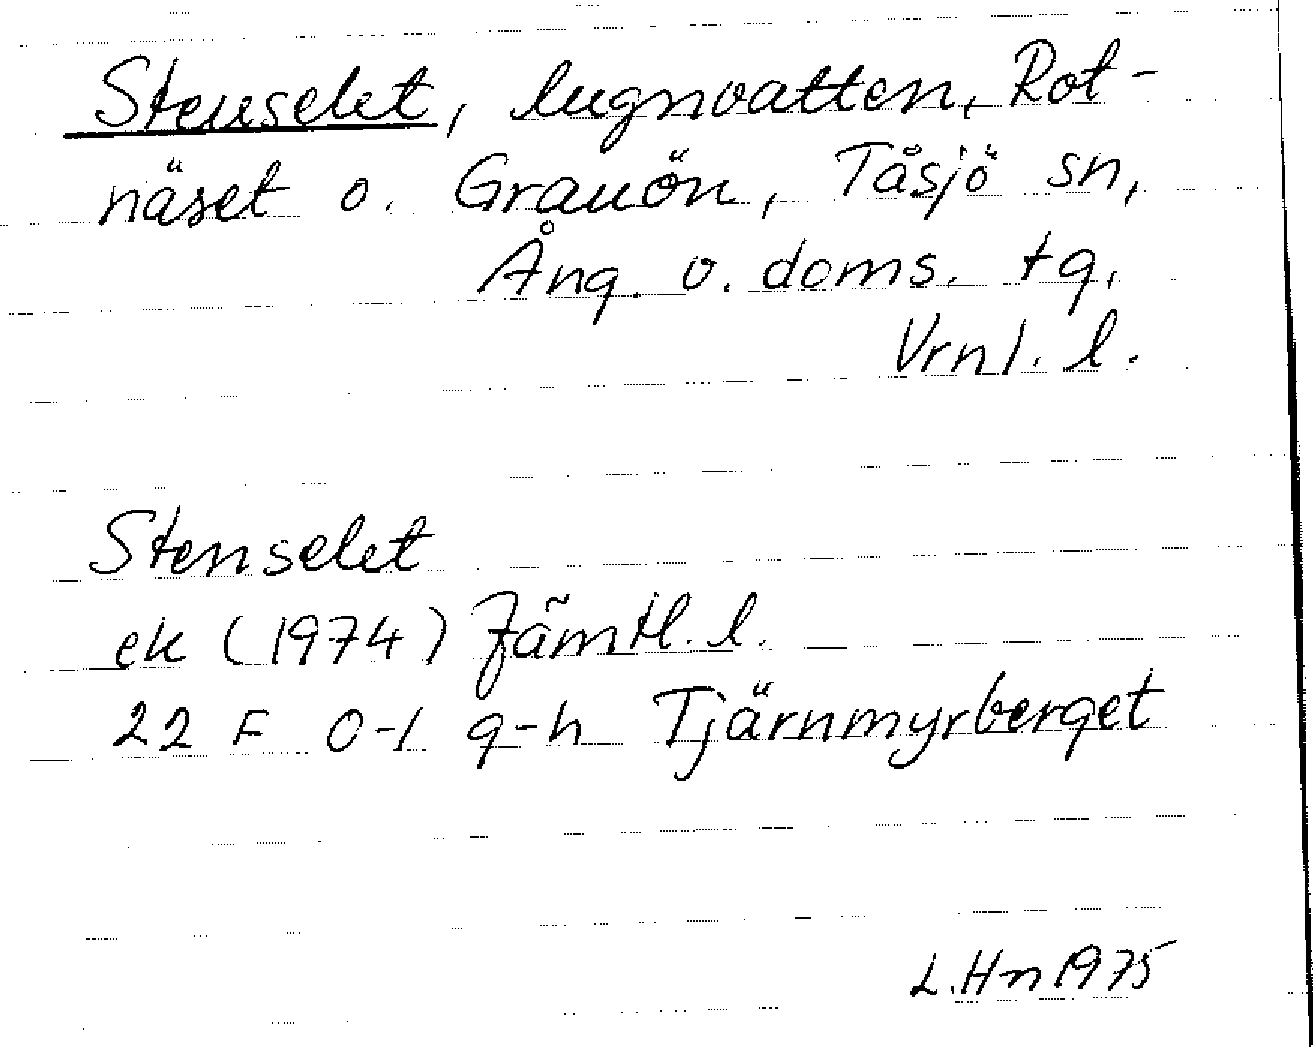 Stenselet, lugnvatten, Rot-
näset o. Granön, Tåsjö sn,
Ång. o. doms. tg,
Vrnl. l.
Stenselet
ek (1974) Jämtl. l.
22 F 0-1 g-h Tjärnmyrberget
L.Hn 1975